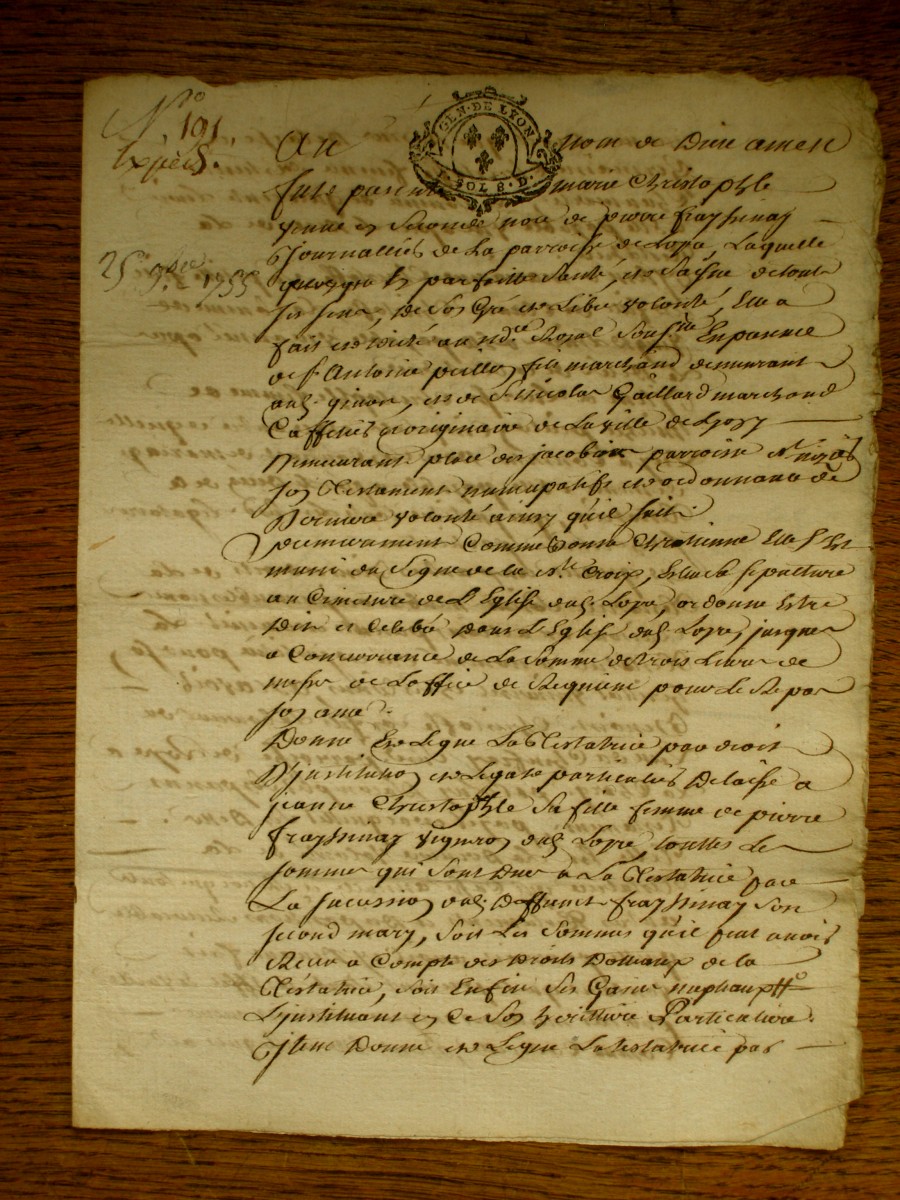 N.º 191
Expedé
25 9bre 1755
GEN. DE LYON
1. SOL 8. D.
Au nom de Dieu amen
fut presente marie Christophle
veuve en seconde noce de pierre frayssinay
Journallier de la parroisse de Loyre, Laquelle
en parfaitte santé, et saisne de tout
ses sens, de son Gré et Libre volonté, Elle a
fait et dicté au nd.re Royal sous.né En presence
de sr Antoine fils marchand demeurant
aud. givor, et de sr nicolas Gaillard marchand
Caffetier originaire de la ville de Lyon
Demeurant place des jacobins parroisse st nizier
son Testament nuncupatif et ordonnance de
Derniere volonté ainsy qu'il suit.
premierement Comme bonne Chretienne Elle s'est
muni du signe de la ste Croix, Eslu sa sepulture
au Cimetiere de L'Eglise dud. Loyre, ordonne Estre
Dit et Celebré Dans L'Eglise dud. Loyre, jusques
a Concurrance de La somme de trois Livres de
messes de L'office de Requiem pour Le Repos
son ame.
Donne et Legue La Testatrice par droit
D'jnstitution et Legat particulier Delaissé a
jeanne Christophle sa fille femme de pierre
frayssinay vigneron dud. Loyre, touttes Les
sommes qui sont Dues a La Testatrice par
La succession dud. Deffunct frayssinay son
second mary, soit Les sommes qu'il peut avoir
Receu a Compte des Droits Dottaux de la
Testatrice, soit Enfin ses Gains nuptiaux
L'jnstituant en Ce son heritiere Particuliere.
Jtem Donne et Legue La testatrice par